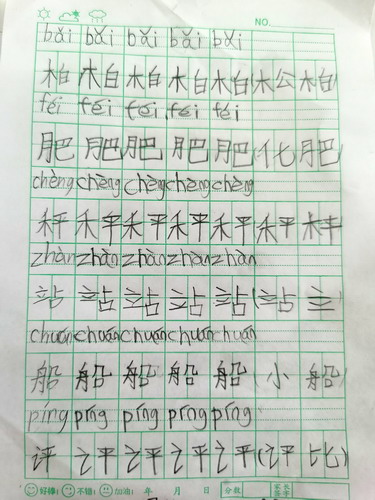 NO.
bǎi bǎi bǎi bǎi bǎi
柏 柏 柏 柏 柏 (松 柏)
féi féi féi féi féi
肥 肥 肥 肥 肥 (化 肥)
chèng chèng chèng chèng chèng
秤 秤 秤 秤 秤 秤
zhàn zhàn zhàn zhàn zhàn
站 站 站 站 站 (站 立)
chuán chuán chuán chuán chuán
船 船 船 船 船 (小 船)
píng píng píng píng píng
评 评 评 评 评 (评 比)
好棒: 不错: 加油: 年 月 日 分数 家长签字